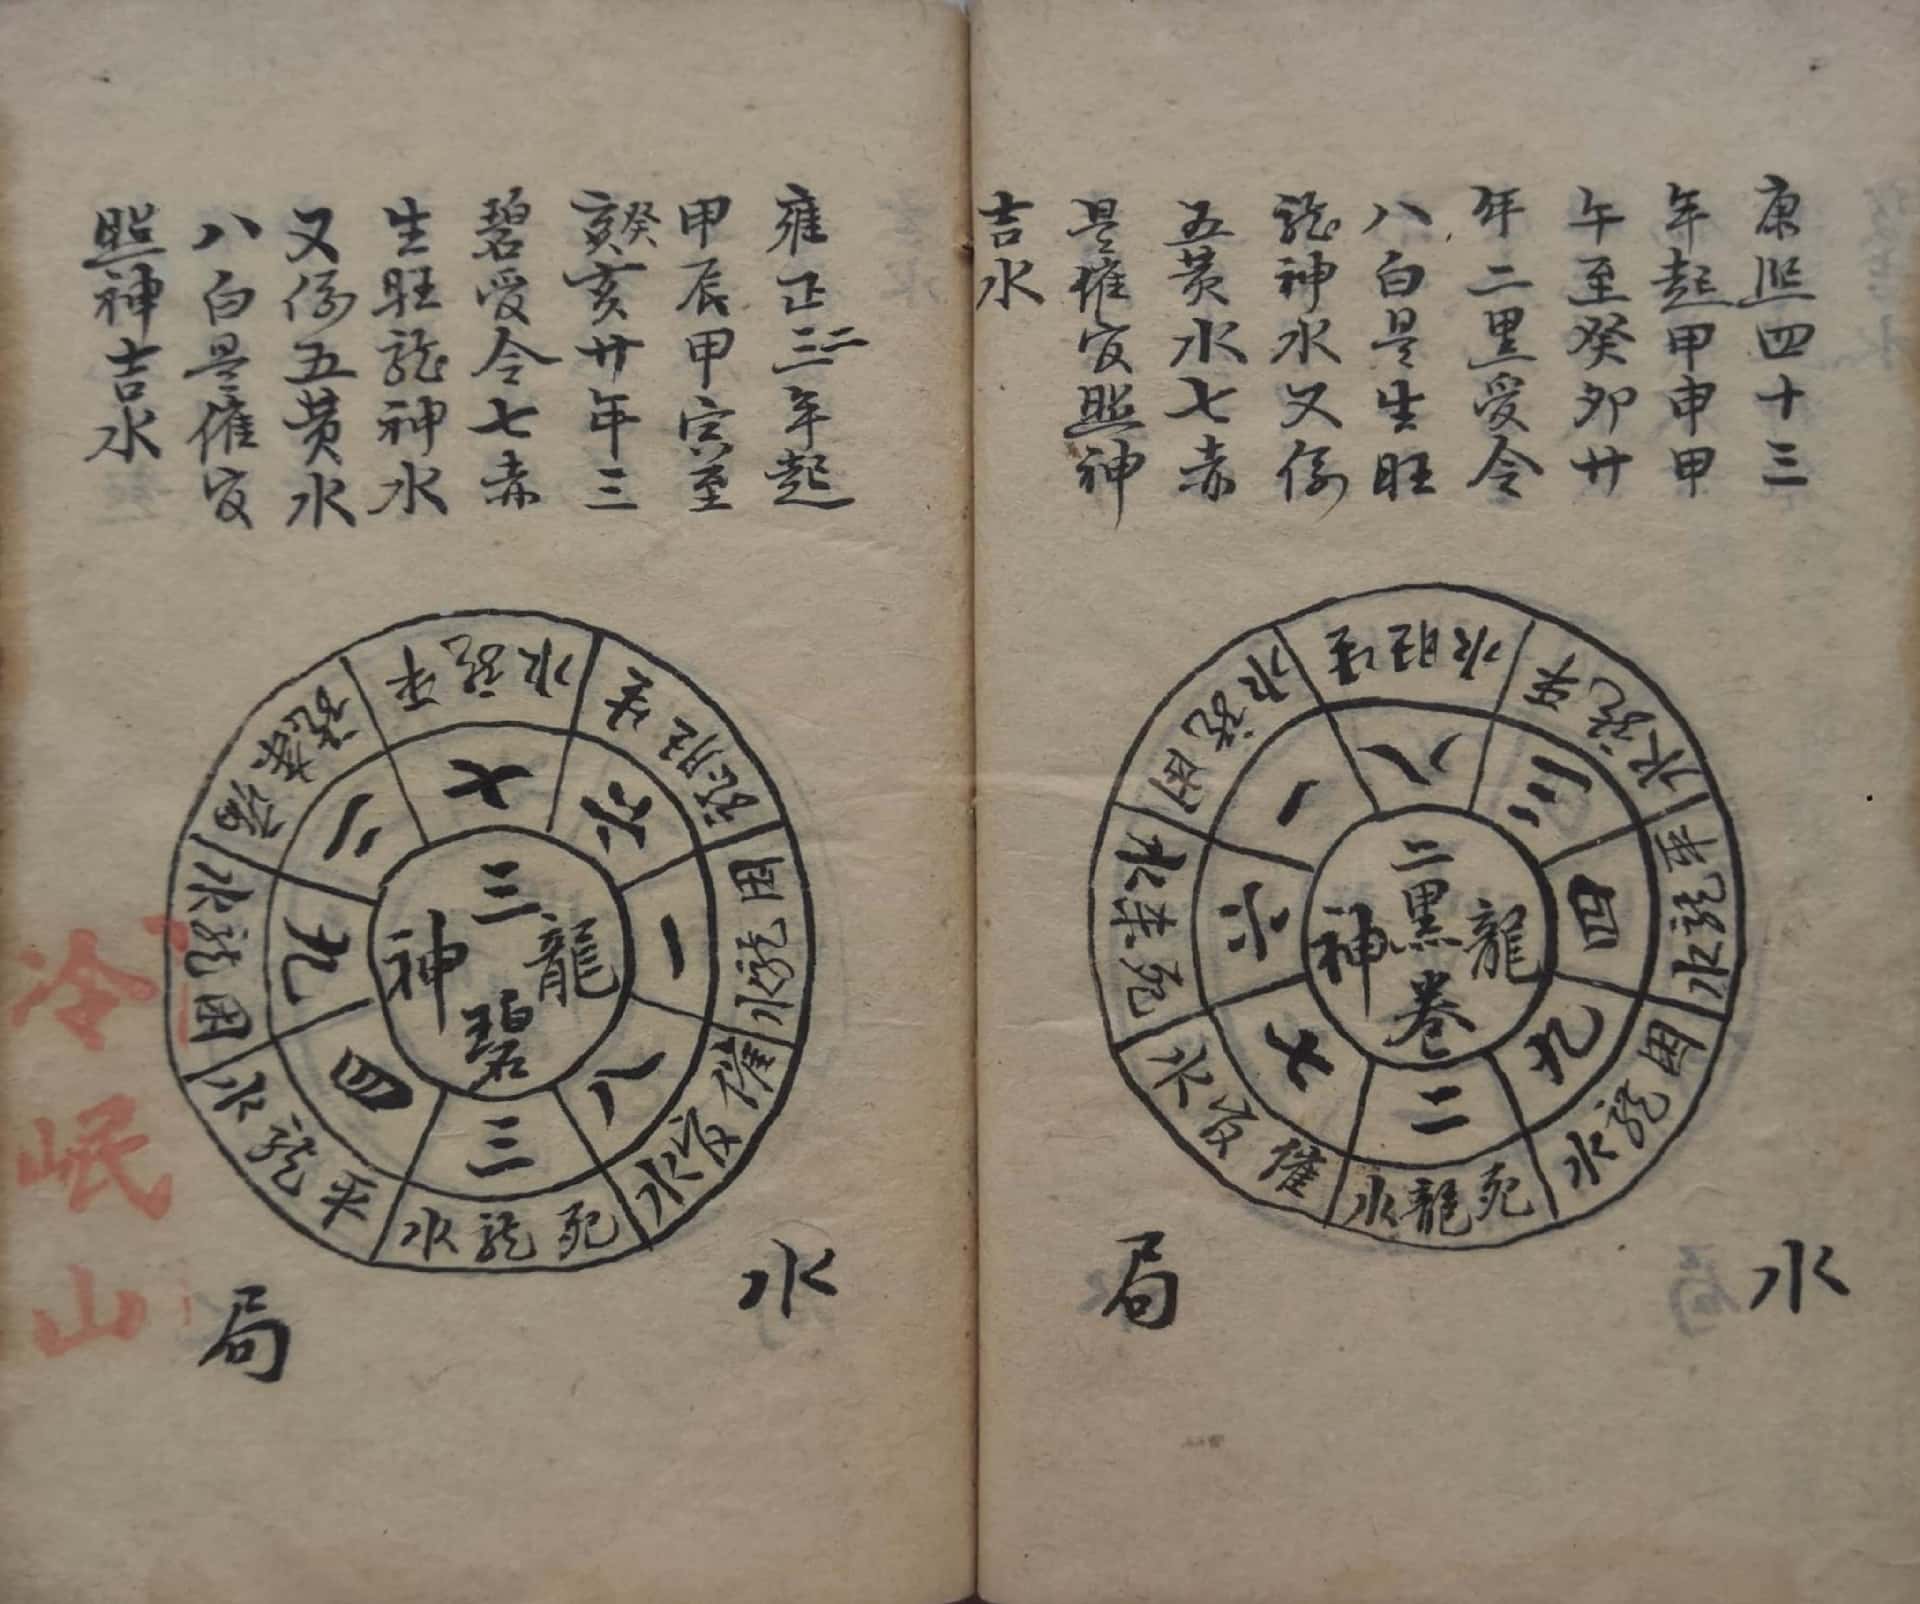 康熙四十三
年起甲申甲
午至癸卯廿
年二黑受令
八白是生旺
龍神水又係
五黄水七赤
是催官照神
吉水
二黑卷
龍神
八
三
四
九
二
七
六
一
生旺水
平龍水
平龍水
困龍水
死龍水
催官水
死煞水
困龍水
水局
雍正三二年起
甲辰甲寅至
癸亥亥廿年三
碧受令七赤
生旺龍神水
又係五黄水
八白是催官
照神吉水
三碧
龍神
七
六
一
八
三
四
九
二
平龍水
生旺龍
困龍水
催官水
死龍水
平龍水
困龍水
水局
冷岷山